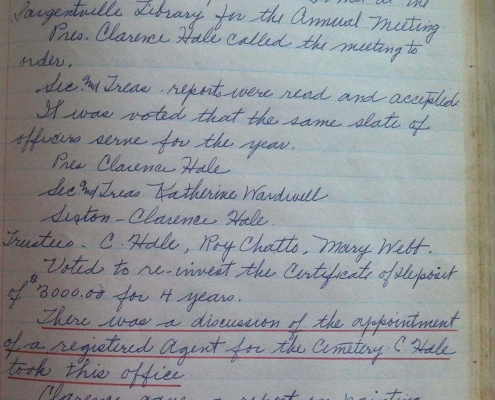 met at the
Sargentville Library for the Annual Meeting.
Pres. Clarence Hale called the meeting to
order.
Sec. and Treas. reports were read and accepted
It was voted that the same slate of
officers serve for the year.
Pres Clarence Hale
Sec and Treas. Katherine Wardwell
Sexton - Clarence Hale.
Trustees - C. Hale, Roy Chatto, Mary Webb.
Voted to re-invest the Certificate of deposit
of $3000.00 for 4 years.
There was a discussion of the appointment
of a registered Agent for the Cemetery C Hale
took this office
Clarence gave a report on painting